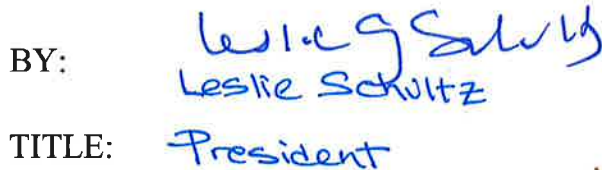 Leslie G Schultz
BY: Leslie Schultz
TITLE: President